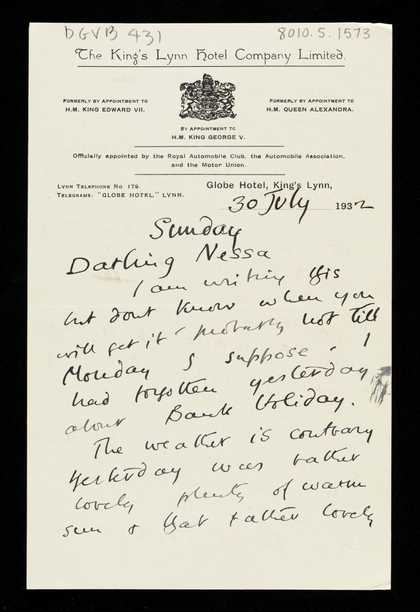 DGVB 431
8010.5.1573
The King's Lynn Hotel Company Limited.
FORMERLY BY APPOINTMENT TO
H.M. KING EDWARD VII.
FORMERLY BY APPOINTMENT TO
H.M. QUEEN ALEXANDRA.
BY APPOINTMENT TO
H.M. KING GEORGE V.
Officially appointed by the Royal Automobile Club, the Automobile Association,
and the Motor Union.
LYNN TELEPHONE No 176.
TELEGRAMS: "GLOBE HOTEL," LYNN.
Globe Hotel, King's Lynn,
30 July 1932
Sunday
Darling Nessa
I am writing this
but dont know when you
will get it - probably not till
Monday I suppose. I
had forgotten yesterday
about Bank Holiday.
The weather is contrary
yesterday was rather
lovely plenty of warm
sun & that rather lovely